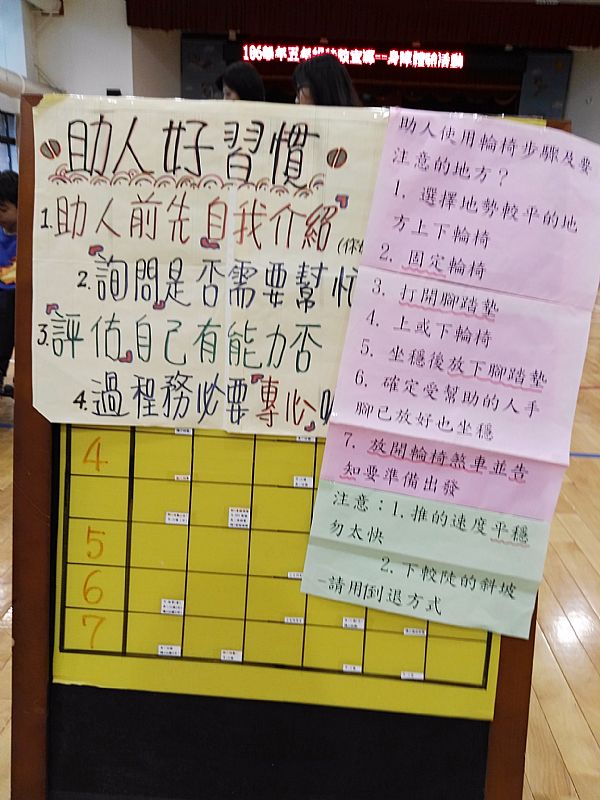 106學年五年級
身障體驗活動
助人好習慣
1.助人前先自我介紹
2.詢問是否需要幫忙
3.評估自己有能力否
4.過程務必要專心
助人使用輪椅步驟及要
注意的地方？
1. 選擇地勢較平的地
方上下輪椅
2. 固定輪椅
3. 打開腳踏墊
4. 上或下輪椅
5. 坐穩後放下腳踏墊
6. 確定受幫助的人手
腳已放好也坐穩
7. 放開輪椅煞車並告
知要準備出發
注意：1. 推的速度平穩
勿太快
2. 下較陡的斜坡
-請用倒退方式
4
5
6
7